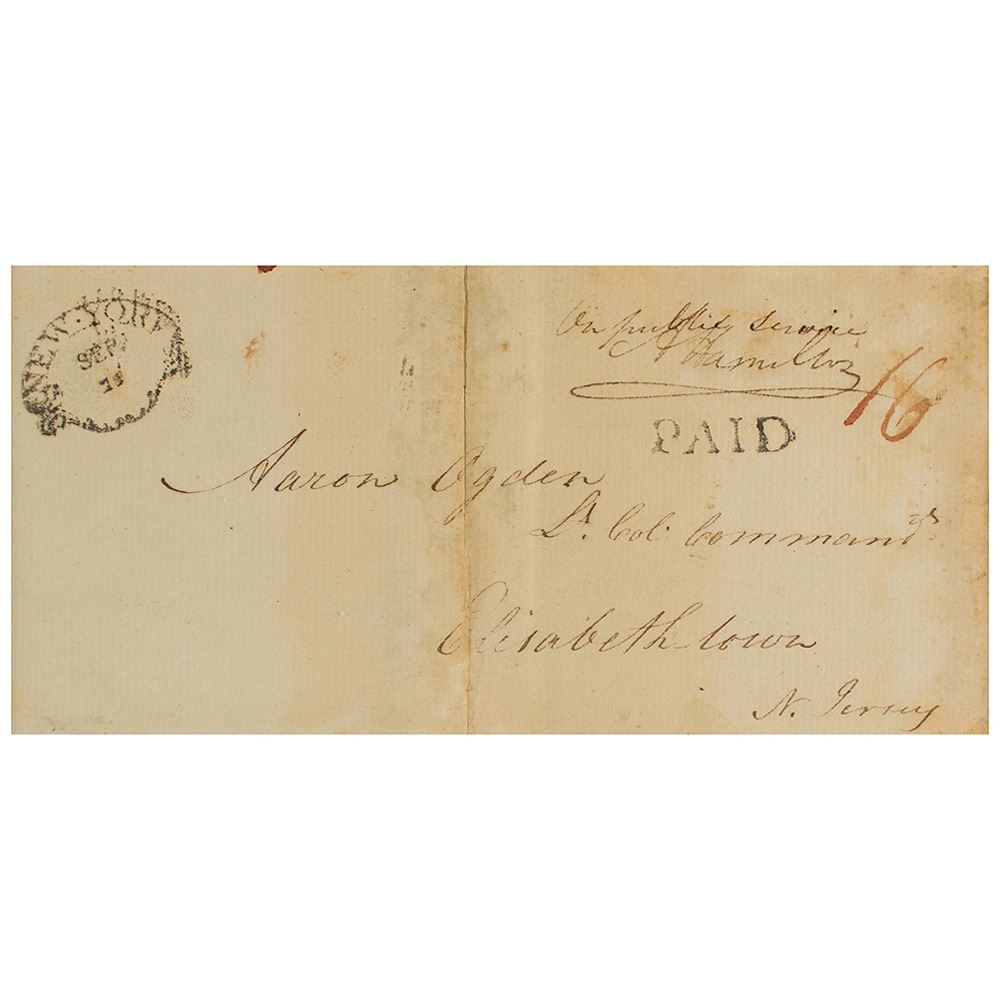 NEW·YORK
SEP.
On public service
Hamilton
16
PAID
Aaron Ogden
Lt. Col. Commandt
Elisabeth town
N. Jersey